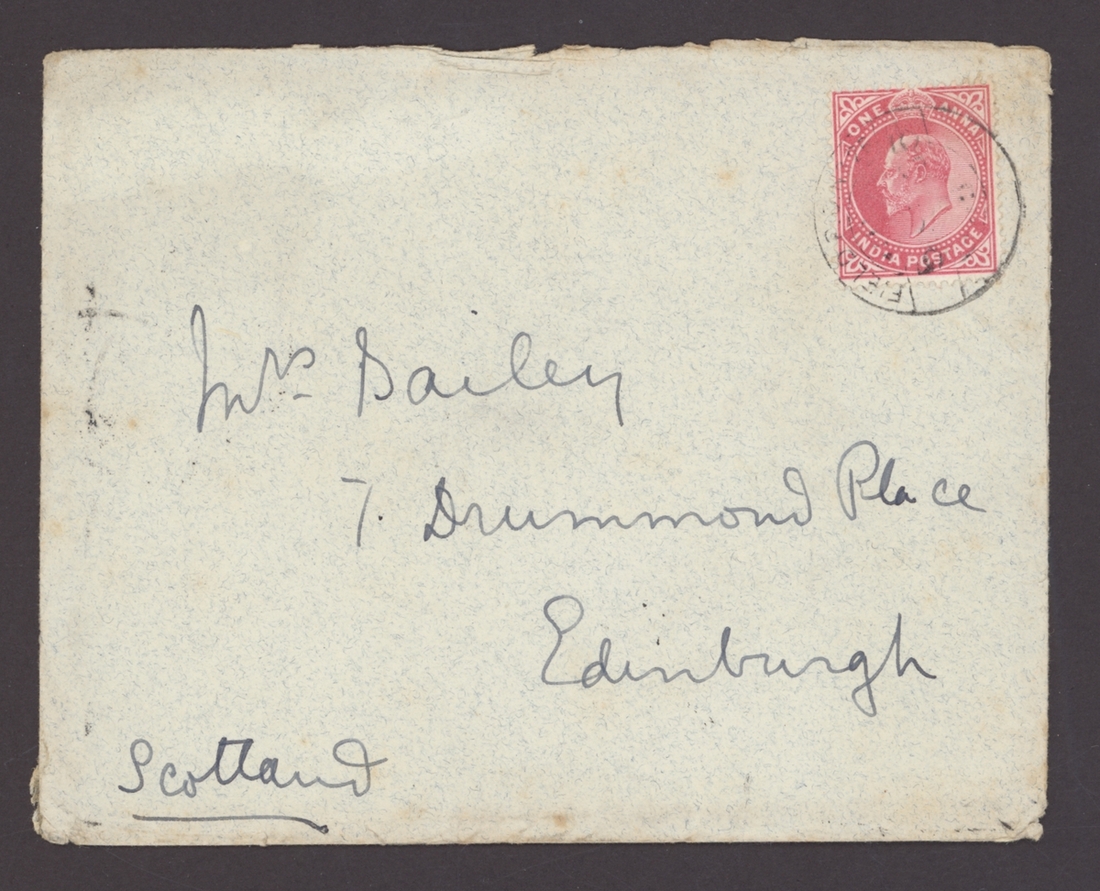 ONE ANNA
INDIA POSTAGE
FIELD
Mrs Bailey
7. Drummond Place
Edinburgh
Scotland